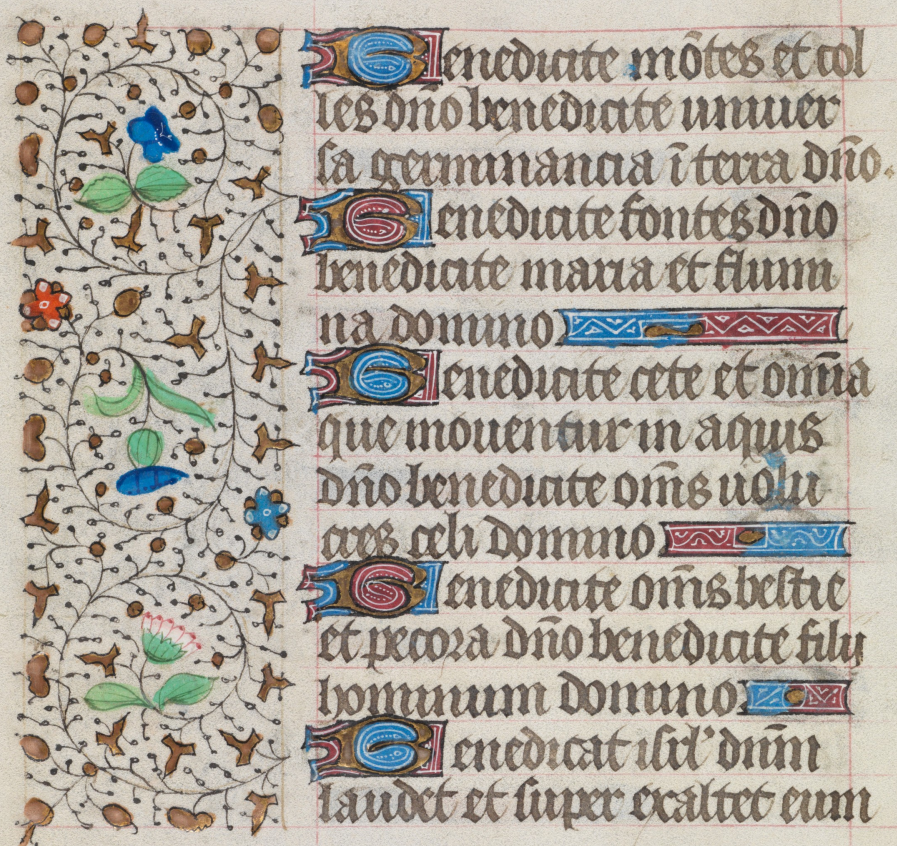 Benedicite mōtes et col
les dn̄o benedicite uniuer
sa germinancia ī terra dn̄o.
Benedicite fontes dn̄o
benedicite maria et flumi
na domino
Benedicite cete et om̄ia
que mouentur in aquis
dn̄o benedicite om̄s uolu
cres celi domino
Benedicite om̄s bestie
et pecora dn̄o benedicite filij
hominum domino
Benedicat isrl' dn̄m
laudet et super exaltet eum